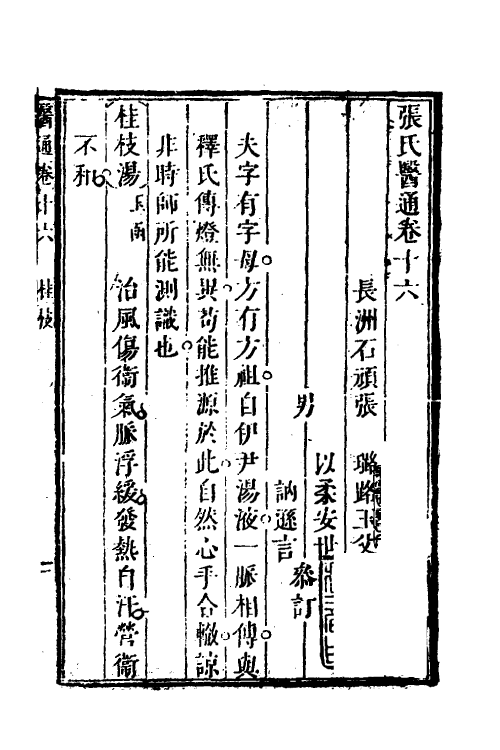 張氏醫通卷十六
長洲石頑張 璐路玉父
男
以柔安世
訥遜言
叅訂
夫字有字母方有方祖自伊尹湯液一脈相傳與
釋氏傳燈無異苟能推源於此自然心手合轍諒
非時師所能測識也
桂枝湯 玉函 治風傷衞氣脈浮緩發熱自汗營衞
不和
醫通卷十六 桂枝 一